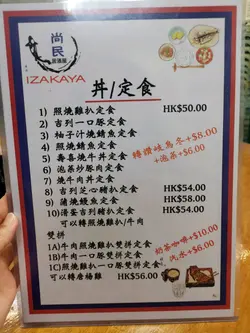 尚民
居酒屋
IZAKAYA
丼/定食
1) 照燒雞扒定食 HK$50.00
2) 吉列一口豚定食
3) 柚子汁燒鯖魚定食
4) 照燒鯖魚定食
5) 壽喜燒牛丼定食
6) 泡菜炒豚肉定食
7) 燒牛肉丼定食
8) 吉列芝心豬扒定食 HK$54.00
9) 蒲燒鰻魚定食 HK$58.00
10) 滑蛋吉列豬扒定食 HK$54.00
可以轉照燒雞扒/牛肉
轉讚岐烏冬+$8.00
+泡菜+$6.00
雙拼
1A)牛肉照燒雞扒雙拼定食
1B)牛肉一口豚雙拼定食
1C)照燒雞扒一口豚雙拼定食
可以轉唐楊雞 HK$56.00
奶茶咖啡+$10.00
汽水+$6.00